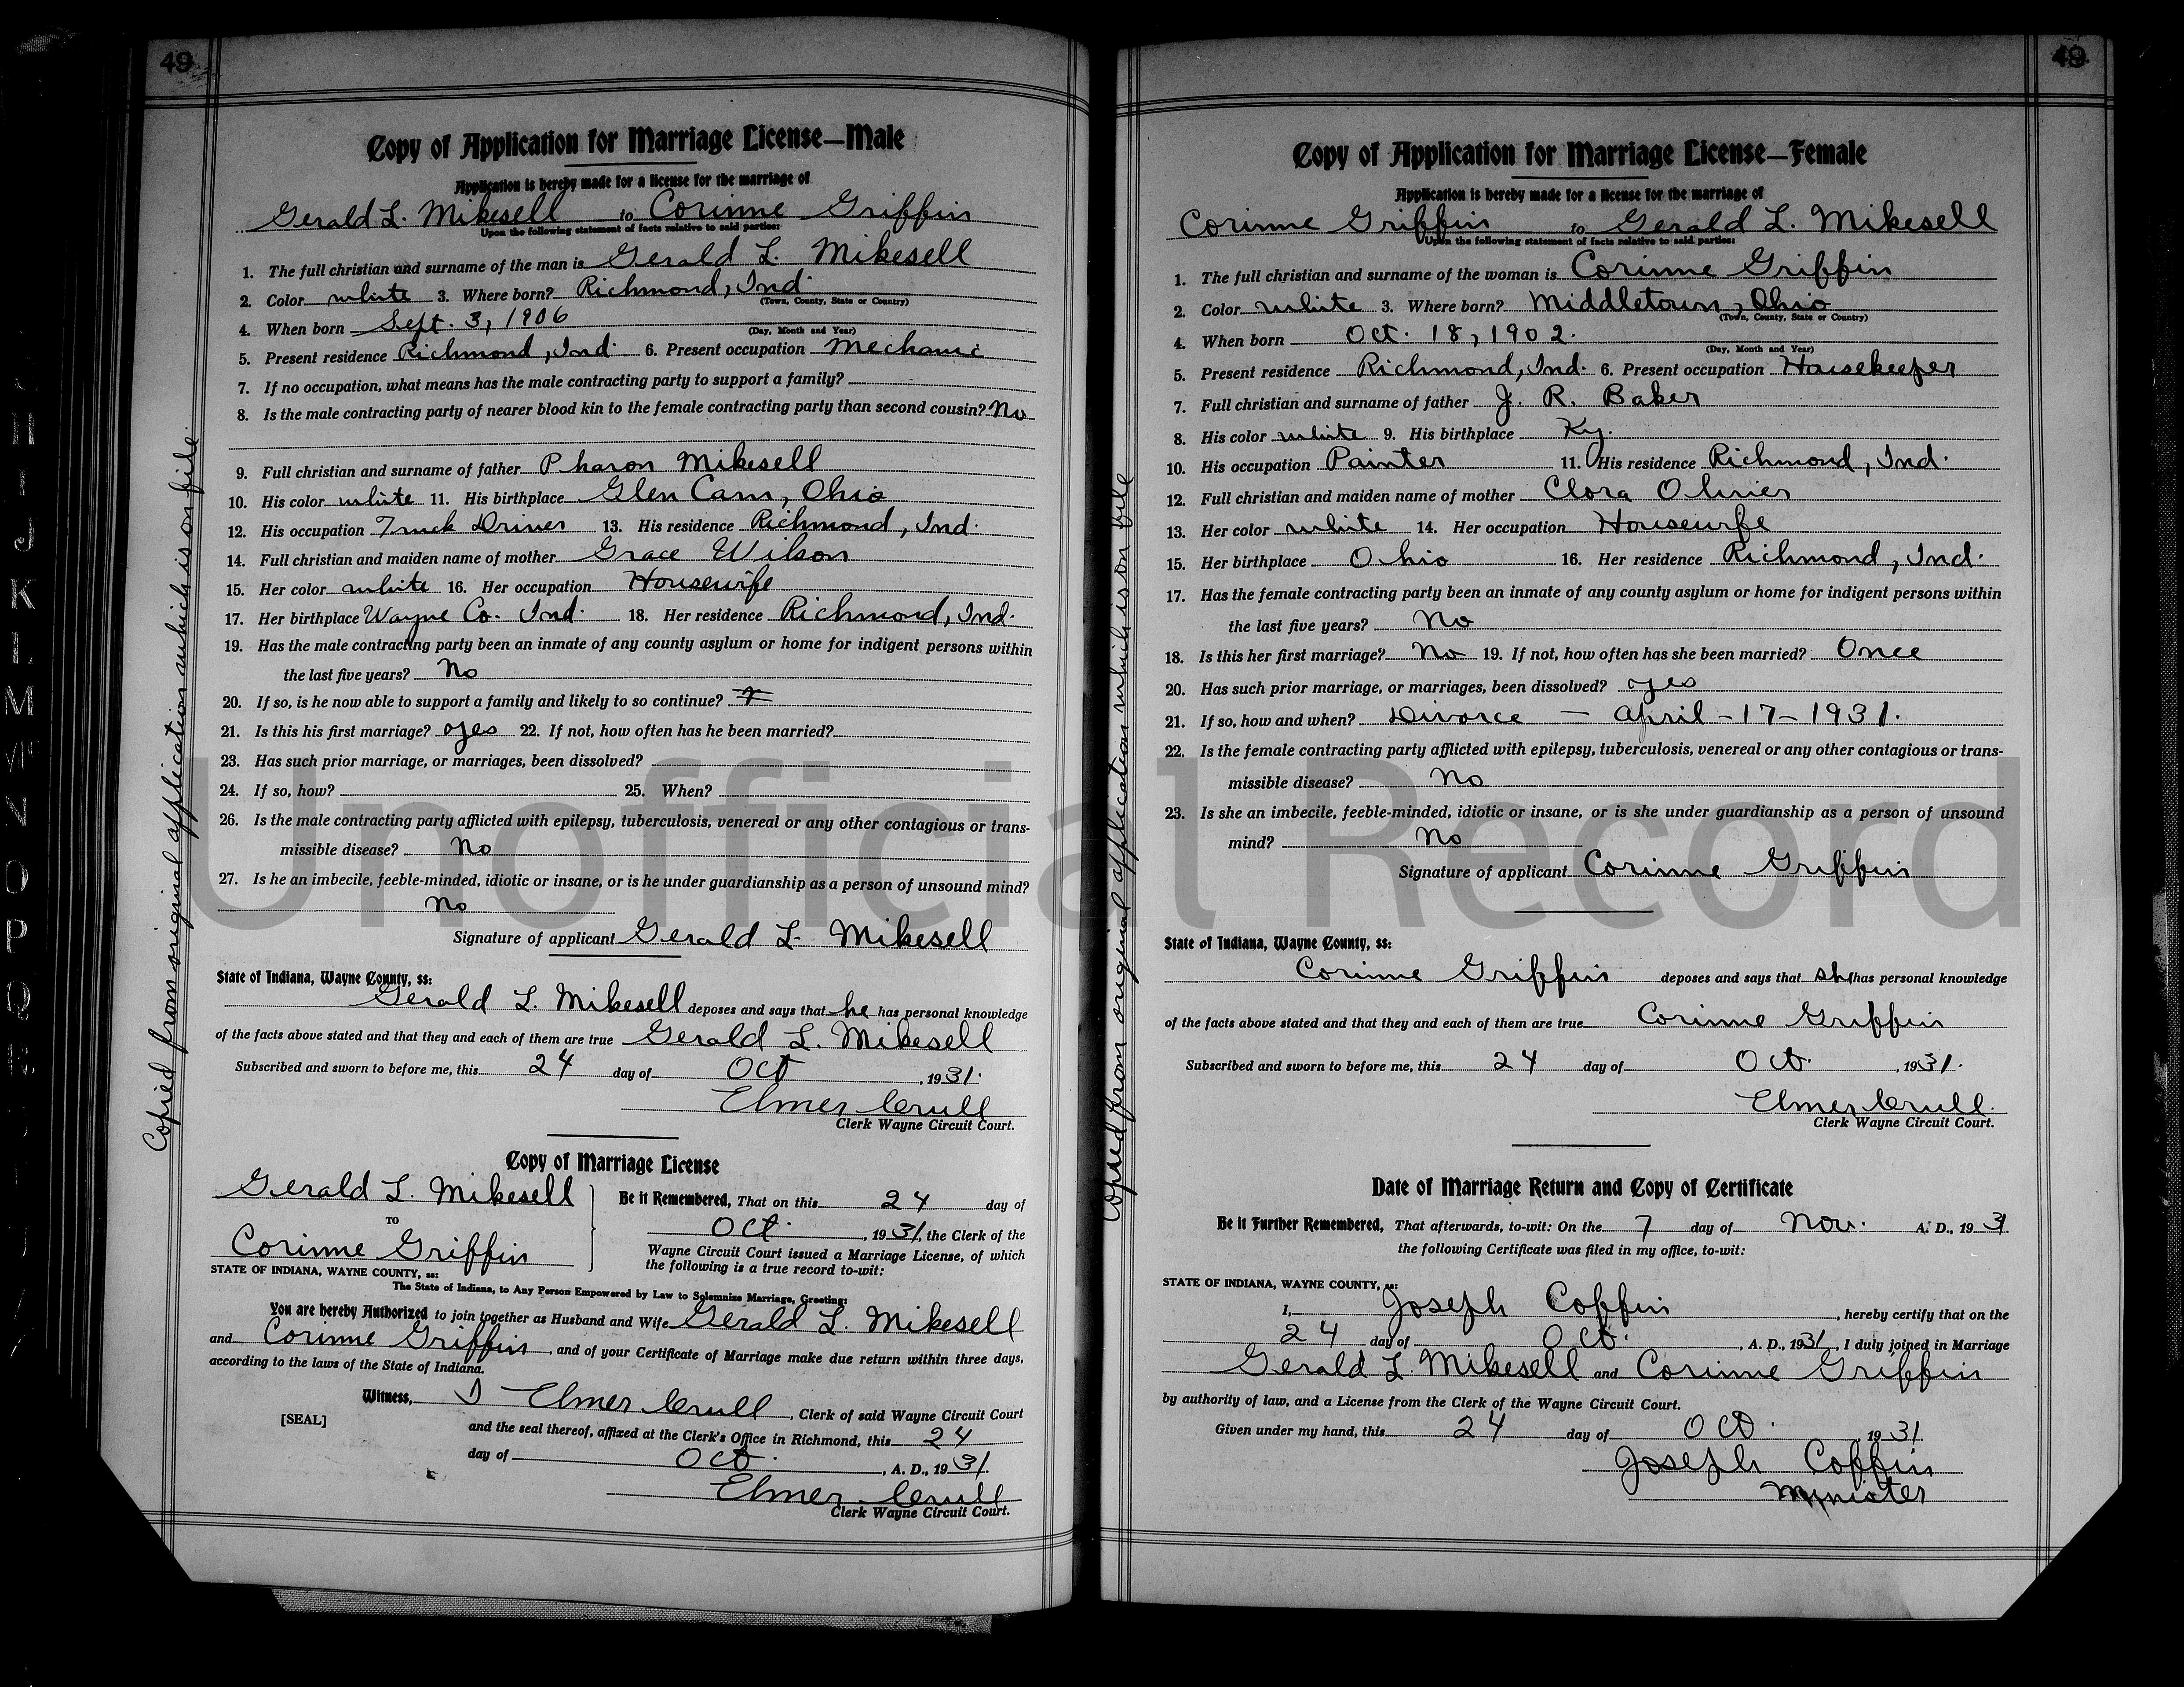 49
Copy of Application for Marriage License—Male
Application is hereby made for a license for the marriage of
Gerald L. Mikesell to Corinne Griffin
Upon the following statement of facts relative to said parties:
1. The full christian and surname of the man is Gerald L. Mikesell
2. Color white 3. Where born? Richmond, Ind.
(Town, County, State or Country)
4. When born Sept. 3, 1906
(Day, Month and Year)
5. Present residence Richmond, Ind. 6. Present occupation Mechanic
7. If no occupation, what means has the male contracting party to support a family?
8. Is the male contracting party of nearer blood kin to the female contracting party than second cousin? No
9. Full christian and surname of father Pharon Mikesell
10. His color white 11. His birthplace Glen Carn, Ohio
12. His occupation Truck Driver 13. His residence Richmond, Ind.
14. Full christian and maiden name of mother Grace Wilson
15. Her color white 16. Her occupation Housewife
17. Her birthplace Wayne Co. Ind. 18. Her residence Richmond, Ind.
19. Has the male contracting party been an inmate of any county asylum or home for indigent persons within
the last five years? No
20. If so, is he now able to support a family and likely to so continue?
21. Is this his first marriage? yes 22. If not, how often has he been married?
23. Has such prior marriage, or marriages, been dissolved?
24. If so, how? 25. When?
26. Is the male contracting party afflicted with epilepsy, tuberculosis, venereal or any other contagious or trans-
missible disease? No
27. Is he an imbecile, feeble-minded, idiotic or insane, or is he under guardianship as a person of unsound mind?
No
Signature of applicant Gerald L. Mikesell
State of Indiana, Wayne County, ss:
Gerald L. Mikesell deposes and says that he has personal knowledge
of the facts above stated and that they and each of them are true Gerald L. Mikesell
Subscribed and sworn to before me, this 24 day of Oct , 1931.
Elmer Crull
Clerk Wayne Circuit Court.
Copy of Marriage License
Gerald L. Mikesell
TO
Corinne Griffin
Be it Remembered, That on this 24 day of
Oct. , 1931, the Clerk of the
Wayne Circuit Court issued a Marriage License, of which
the following is a true record to-wit:
STATE OF INDIANA, WAYNE COUNTY, ss:
The State of Indiana, to Any Person Empowered by Law to Solemnize Marriage, Greeting:
You are hereby Authorized to join together as Husband and Wife Gerald L. Mikesell
and Corinne Griffin , and of your Certificate of Marriage make due return within three days,
according to the laws of the State of Indiana.
Witness, I Elmer Crull , Clerk of said Wayne Circuit Court
[SEAL]
and the seal thereof, affixed at the Clerk's Office in Richmond, this 24
day of Oct. , A. D., 1931.
Elmer Crull
Clerk Wayne Circuit Court.
Copied from original application which is on file.
49
Copy of Application for Marriage License—Female
Application is hereby made for a license for the marriage of
Corinne Griffin to Gerald L. Mikesell
Upon the following statement of facts relative to said parties:
1. The full christian and surname of the woman is Corinne Griffin
2. Color white 3. Where born? Middletown, Ohio
(Town, County, State or Country)
4. When born Oct. 18, 1902.
(Day, Month and Year)
5. Present residence Richmond, Ind. 6. Present occupation Housekeeper
7. Full christian and surname of father J. R. Baker
8. His color white 9. His birthplace Ky.
10. His occupation Painter 11. His residence Richmond, Ind.
12. Full christian and maiden name of mother Clora Olivier
13. Her color white 14. Her occupation Housewife
15. Her birthplace Ohio 16. Her residence Richmond, Ind.
17. Has the female contracting party been an inmate of any county asylum or home for indigent persons within
the last five years? No
18. Is this her first marriage? No 19. If not, how often has she been married? Once
20. Has such prior marriage, or marriages, been dissolved? yes
21. If so, how and when? Divorce — April-17-1931.
22. Is the female contracting party afflicted with epilepsy, tuberculosis, venereal or any other contagious or trans-
missible disease? No
23. Is she an imbecile, feeble-minded, idiotic or insane, or is she under guardianship as a person of unsound
mind? No
Signature of applicant Corinne Griffin
State of Indiana, Wayne County, ss:
Corinne Griffin deposes and says that she has personal knowledge
of the facts above stated and that they and each of them are true Corinne Griffin
Subscribed and sworn to before me, this 24 day of Oct. , 1931.
Elmer Crull.
Clerk Wayne Circuit Court.
Date of Marriage Return and Copy of Certificate
Be it Further Remembered, That afterwards, to-wit: On the 7 day of Nov. A. D., 1931.
the following Certificate was filed in my office, to-wit:
STATE OF INDIANA, WAYNE COUNTY, ss:
I, Joseph Coffin , hereby certify that on the
24 day of Oct. , A. D., 1931, I duly joined in Marriage
Gerald L. Mikesell and Corinne Griffin
by authority of law, and a License from the Clerk of the Wayne Circuit Court.
Given under my hand, this 24 day of Oct. 1931.
Joseph Coffin
Minister
Copied from original application which is on file
Unofficial Record
H
J
K
L
M
N
O
P
Q
R